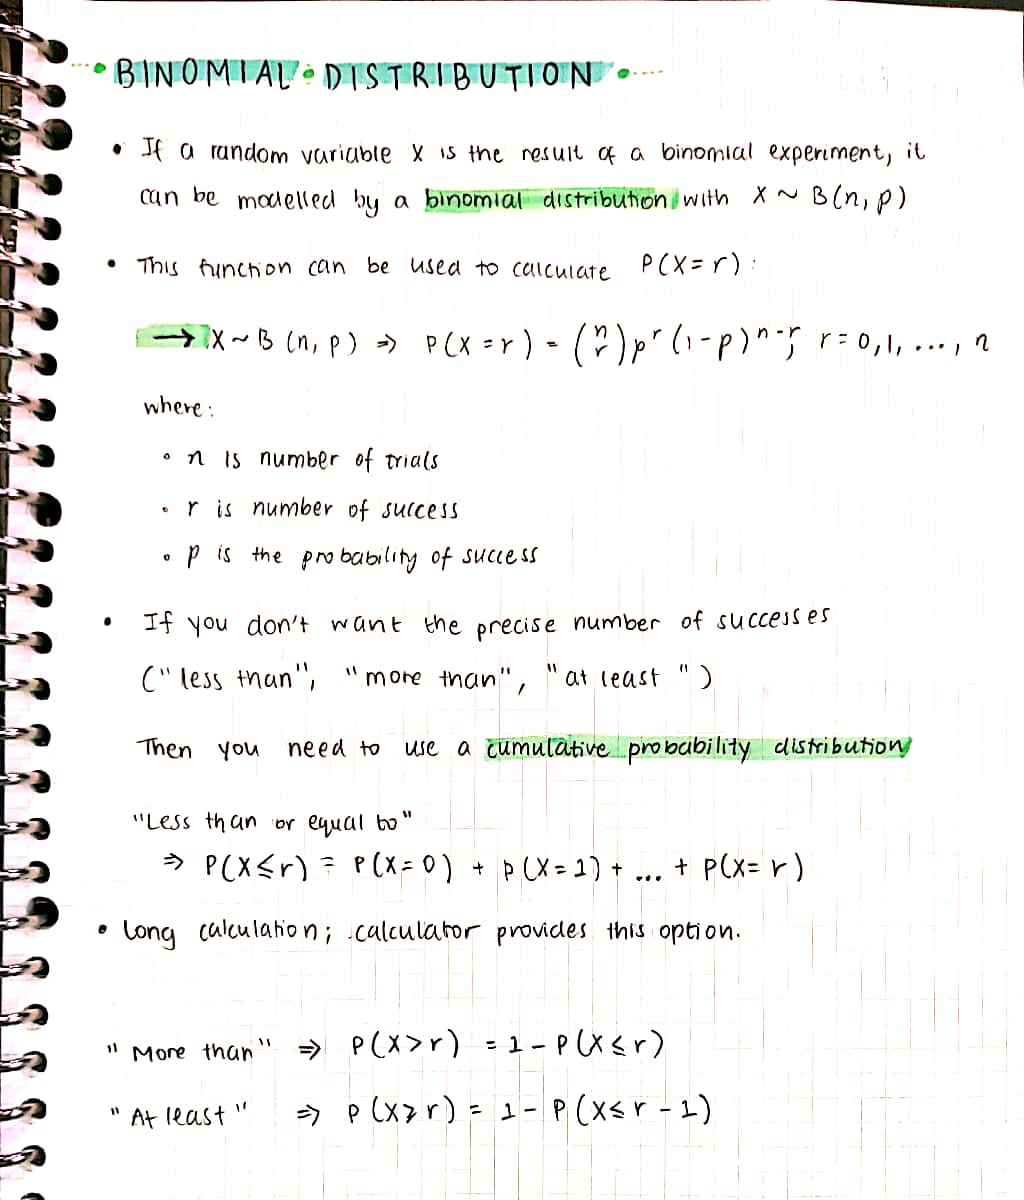 • BINOMIAL • DISTRIBUTION •
• If a random variable X is the result of a binomial experiment, it
can be modelled by a binomial distribution with X ~ B(n, p)
• This function can be used to calculate P(X=r):
→ X ~ B (n, p) ⇒ P(X=r) = (n r) p^r (1-p)^n-r; r=0,1, ..., n
where:
∘ n is number of trials
∘ r is number of success
∘ p is the probability of success
• If you don't want the precise number of successes
("less than", "more than", "at least ")
Then you need to use a cumulative probability distribution
"Less than or equal to"
⇒ P(X≤r) = P(X=0) + P(X=1) + ... + P(X=r)
• Long calculation; calculator provides this option.
"More than" ⇒ P(X>r) = 1 - P(X≤r)
"At least" ⇒ P(X≥r) = 1 - P(X≤r-1)